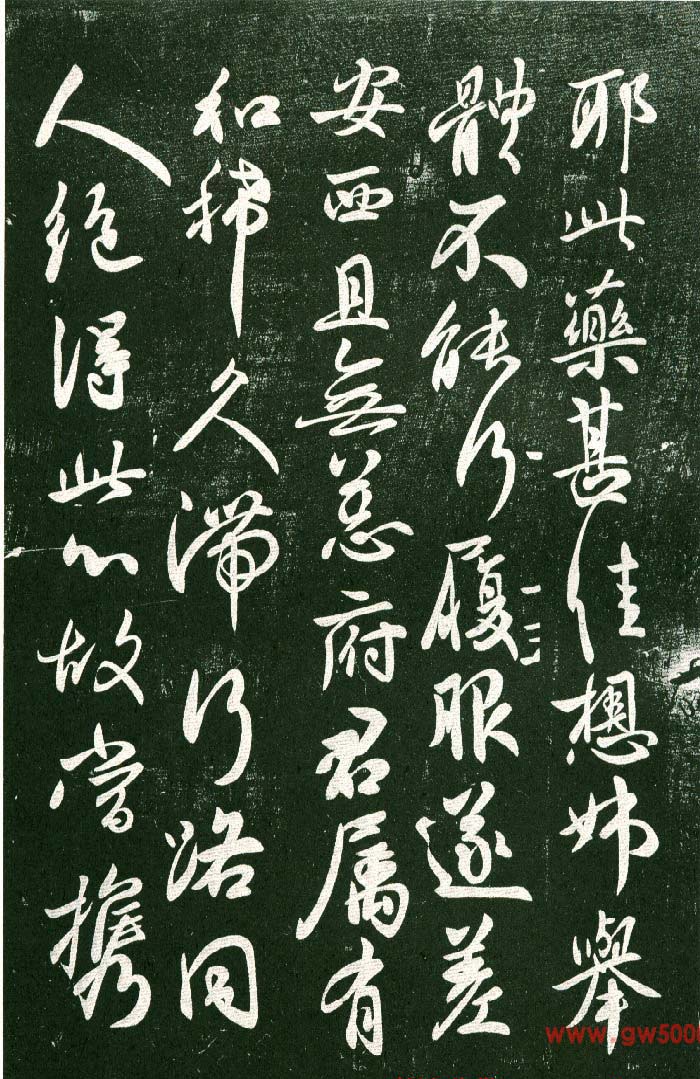 耶此藥甚佳想姊舉
體不能行履眼遂差
安西且無恙府君属有
和久滯行路同
人絕得此故當携
www.gw500